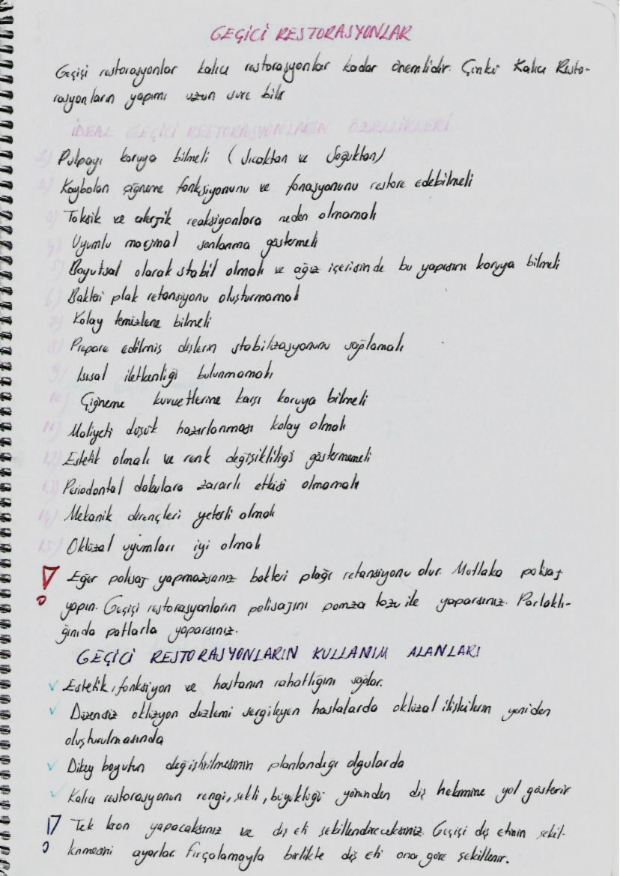 GEÇİCİ RESTORASYONLAR
Geçişi restorasyonlar kalıcı restorasyonlar kadar önemlidir. Çünkü Kalıcı Resto-
rasyonların yapımı uzun süre bilir
İDEAL GEÇİCİ RESTORASYONLARIN ÖZELLİKLERİ
1) Pulpayı koruya bilmeli (Sıcaktan ve Soğuktan)
2) Kaybolan çiğneme fonksiyonunu ve fonasyonunu restore edebilmeli
3) Toksik ve alerjik reaksiyonlara neden olmamalı
4) Uyumlu marjinal sonlanma göstermeli
5) Boyutsal olarak stabil olmalı ve ağız içerisinde bu yapısını koruya bilmeli
6) Bakteri plak retansiyonu oluşturmamalı
7) Kolay temizlene bilmeli
8) Prepare edilmiş dişlerin stabilizasyonunu sağlamalı
9) Isısal iletkenliği bulunmamalı
10) Çiğneme kuvvetlerine karşı koruya bilmeli
11) Maliyeti düşük hazırlanması kolay olmalı
12) Estetik olmalı ve renk değişikliliği göstermemeli
13) Periodontal dokulara zararlı etkisi olmamalı
14) Mekanik dirençleri yeterli olmalı
15) Oklüzal uyumları iyi olmalı
Eğer polisaj yapmazsanız bakteri plağı retansiyonu olur. Mutlaka polisaj
yapın. Geçişi restorasyonların polisajını pomza tozu ile yaparsınız. Parlaklı-
ğınıda patlarla yaparsınız.
GEÇİCİ RESTORASYONLARIN KULLANIM ALANLARI
✓ Estetik, fonksiyon ve hastanın rahatlığını sağlar.
✓ Düzensiz oklüzyon düzlemi sergileyen hastalarda oklüzal ilişkilerin yeniden
oluşturulmasında
✓ Dikey boyutun değiştirilmesinin planlandığı olgularda
✓ Kalıcı restorasyonun rengi, şekli, büyüklüğü yönünden diş hekimine yol gösterir
Tek kron yapacaksınız ve diş eti şekillendireceksiniz. Geçişi diş etinin şekil-
lenmesini ayarlar fırçalamayla birlikte diş eti ona göre şekillenir.